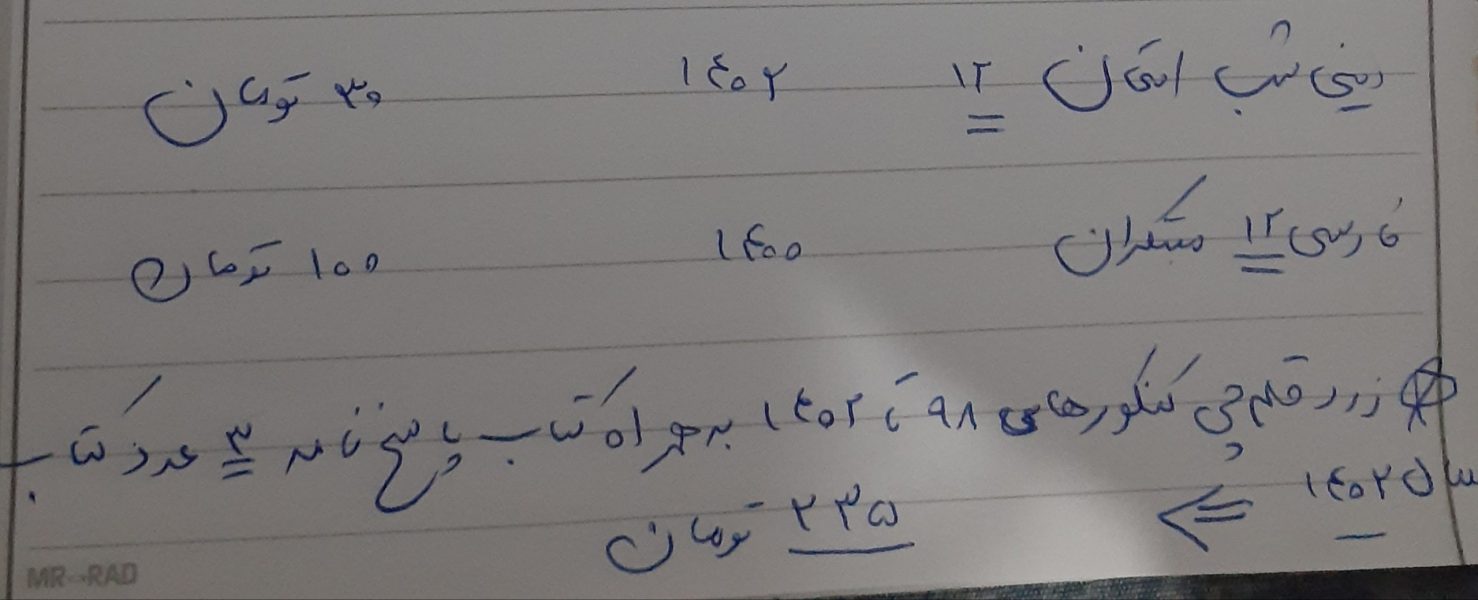 دینی شب امتحان ۱۲ ۱۴۰۲ ۳۰ تومان
فارسی ۱۲ مبتکران ۱۴۰۰ ۱۰۰ تومان
زرد قلم چی کنکورهای ۹۸ تا ۱۴۰۲ به همراه کتاب پاسخ نامه ۳ عدد کتاب
سال ۱۴۰۲ ⇐ ۲۳۵ تومان
MR-RAD